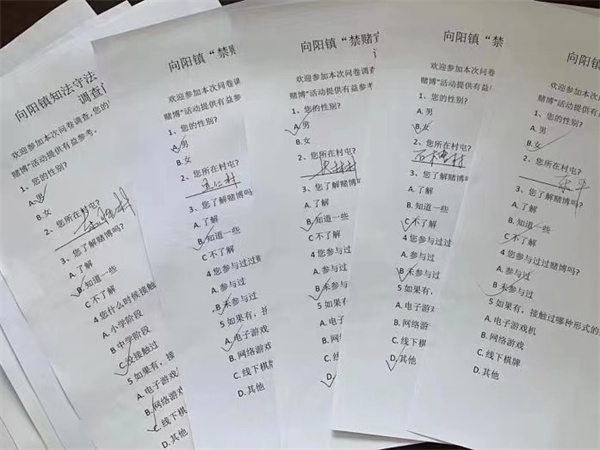 向阳镇知法守法
调查
欢迎参加本次问卷调查,您的
赌博”活动提供有益参考。
1、您的性别?
A.男
B.女
2、您所在村屯?
3、您了解赌博吗?
A.了解
B.知道一些
C不了解
4您什么时候接触
A.小学阶段
B中学阶段
C.没接触过
5如果有,接
A.电子游戏
B.网络游戏
C.线下棋
D.其他
向阳镇“禁赌宣
欢迎参加本次问卷调
赌博”活动提供有益
1、您的性别?
A.男
B.女
2、您所在村屯?
3、您了解赌博吗?
A.了解
B.知道一些
C不了解
4您参与过过赌
A.参与过
B未参与过
5如果有,接
A.电子游戏
B.网络游戏
C.线下棋
D.其他
向阳镇“禁赌宣
欢迎参加本次问卷
赌博”活动提供有益参
1、您的性别?
A.男
B.女
2、您所在村屯?
3、您了解赌博吗
A.了解
B.知道一些
C不了解
4您参与过过赌
A.参与过
B未参与过
5如果有,接
A.电子游戏
B.网络游戏
C.线下棋
D.其他
向阳镇“禁
欢迎参加本次问卷
赌博”活动提供有益
1、您的性别?
A.男
B.女
2、您所在村屯?
3、您了解赌博吗
A.了解
B.知道一些
C.不了解
4您参与过过
A.参与过
B未参与过
5如果有,接
A.电子游戏
B.网络游戏
C.线下棋牌
D.其他
向阳镇“禁
欢迎参加本次问卷
赌博”活动提供有益
1、您的性别?
A.男
B.女
2、您所在村屯?
3、您了解赌博吗?
A.了解
B.知道一些
C不了解
4您参与过过赌博吗?
A.参与过
B未参与过
5如果有,接触过哪种形式的
A.电子游戏机
B.网络游戏
C.线下棋牌
D.其他